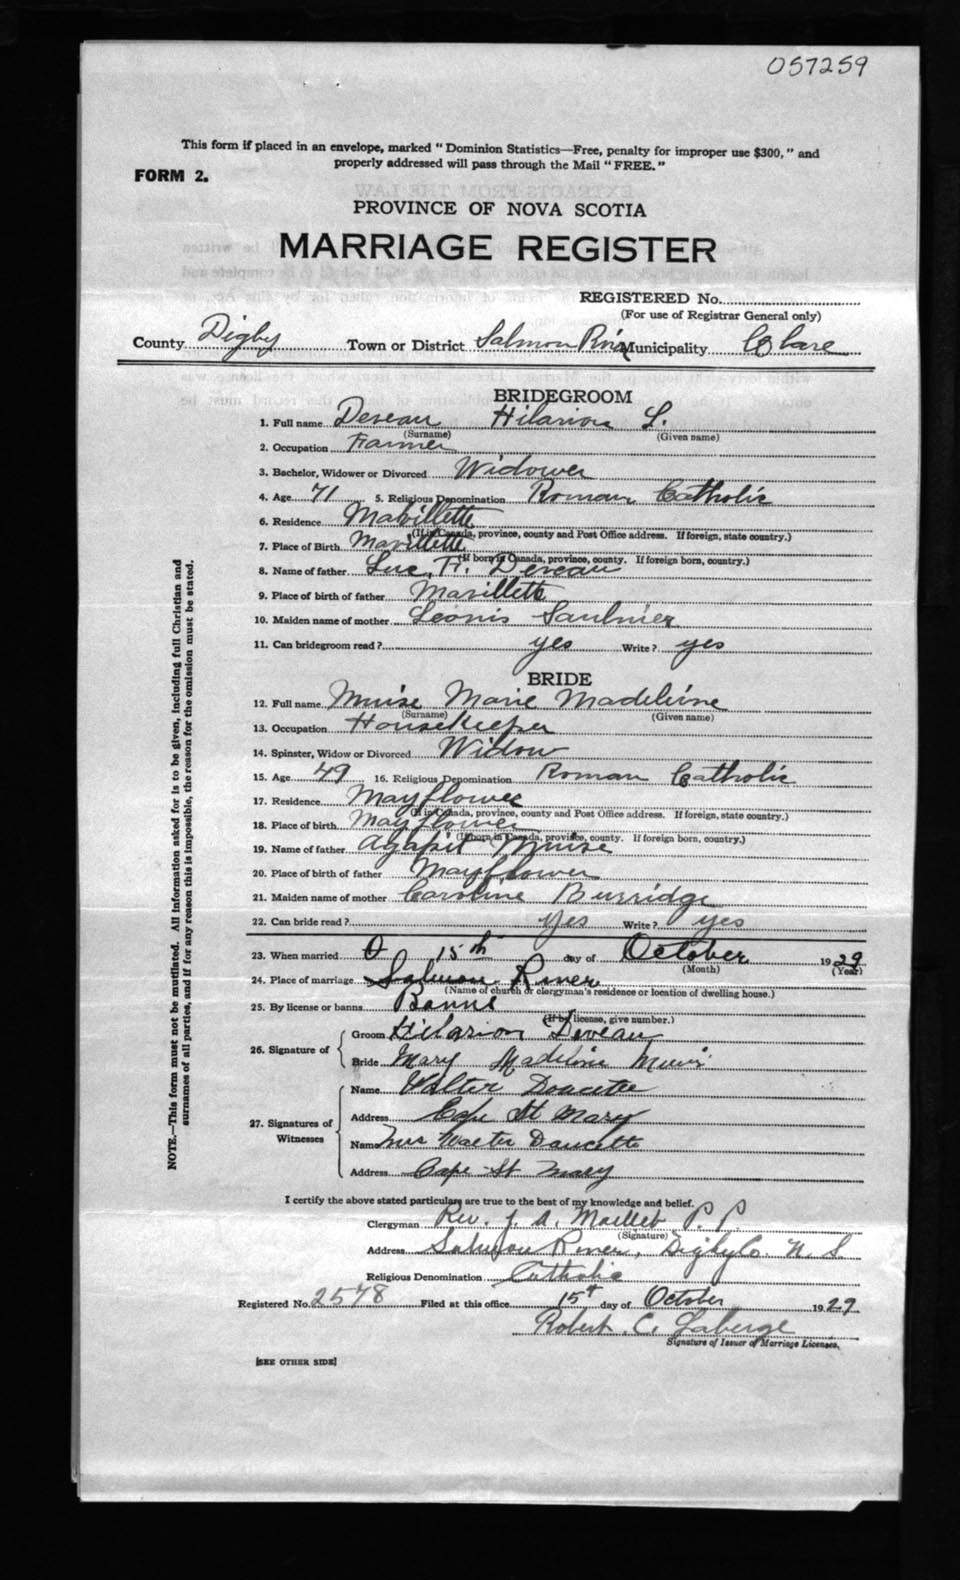 057259
This form if placed in an envelope, marked "Dominion Statistics—Free, penalty for improper use $300," and
properly addressed will pass through the Mail "FREE."
FORM 2.
PROVINCE OF NOVA SCOTIA
MARRIAGE REGISTER
REGISTERED No.
(For use of Registrar General only)
County Digby Town or District Salmon River Municipality Clare
BRIDEGROOM
1. Full name Deveau Hilarion L.
(Surname) (Given name)
2. Occupation Farmer
3. Bachelor, Widower or Divorced Widower
4. Age 71 5. Religious Denomination Roman Catholic
6. Residence Mavillette
(If in Canada, province, county and Post Office address. If foreign, state country.)
7. Place of Birth Mavillette
(If born in Canada, province, county. If foreign born, country.)
8. Name of father Luc F. Deveau
9. Place of birth of father Mavillette
10. Maiden name of mother Leonis Saulnier
11. Can bridegroom read? yes Write? yes
BRIDE
12. Full name Muise Marie Madeleine
(Surname) (Given name)
13. Occupation Housekeeper
14. Spinster, Widow or Divorced Widow
15. Age 49 16. Religious Denomination Roman Catholic
17. Residence Mayflower
(If in Canada, province, county and Post Office address. If foreign, state country.)
18. Place of birth Mayflower
(If born in Canada, province, county. If foreign born, country.)
19. Name of father Agapit Muise
20. Place of birth of father Mayflower
21. Maiden name of mother Caroline Burridge
22. Can bride read? Yes Write? yes
23. When married 15th day of October 1929
(Month) (Year)
24. Place of marriage Salmon River
(Name of church or clergyman's residence or location of dwelling house.)
25. By license or banns Banns
(If by license, give number.)
26. Signature of
Groom Hilarion Deveau
Bride Mary Madeline Muis
27. Signatures of Witnesses
Name Walter Doucette
Address Cape St Mary
Name Mrs Walter Doucette
Address Cape St Mary
I certify the above stated particulars are true to the best of my knowledge and belief.
Clergyman Rev. J. A. Maillet P. P.
(Signature)
Address Salmon River, Digby Co. N. S.
Religious Denomination Catholic
Registered No. 2578 Filed at this office 15t day of October 1929
Robert C. Laberge
Signature of Issuer of Marriage Licenses.
[SEE OTHER SIDE]
NOTE.—This form must not be mutilated. All information asked for is to be given, including full Christian and
surnames of all parties, and if for any reason this is impossible, the reason for the omission must be stated.